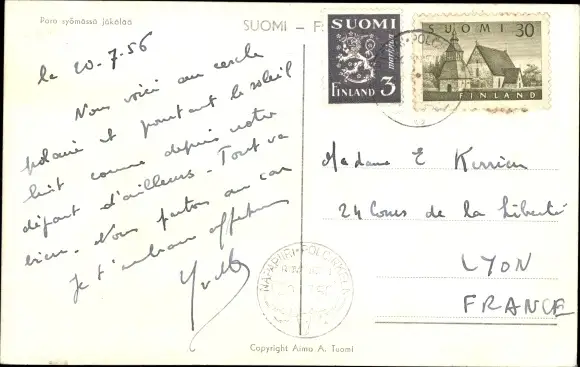 Poro syömässä jäkälää
SUOMI – F
le 20-7-56
Nous voici au cercle
polaire et pourtant le soleil
luit comme depuis notre
départ d'ailleurs - Tout va
bien - Nous partons au cap
Je t'embrasse affectueus
SUOMI
markkaa
FINLAND 3
SUOMI 30
FINLAND
Madame E
24 Cours de la Liberté
LYON
FRANCE
NAPAPIIRI - POLCIRKELN
Copyright Aimo A. Tuomi